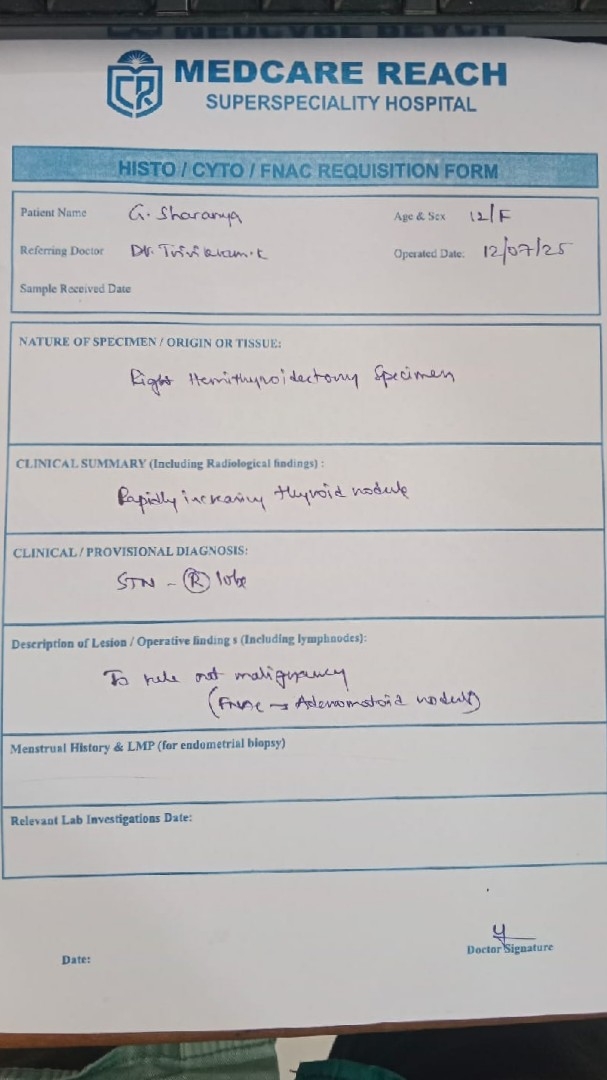 MEDCARE REACH
SUPERSPECIALITY HOSPITAL
HISTO / CYTO / FNAC REQUISITION FORM
Patient Name G. Sharanya Age & Sex 12/F
Referring Doctor Dr. Trivikram.k Operated Date: 12/07/25
Sample Received Date
NATURE OF SPECIMEN / ORIGIN OR TISSUE:
Right Hemithyroidectomy Specimen
CLINICAL SUMMARY (Including Radiological findings) :
Rapidly increasing thyroid nodule
CLINICAL / PROVISIONAL DIAGNOSIS:
STN - (R) lobe
Description of Lesion / Operative finding s (Including lymphnodes):
To rule out malignancy
(FNAC → Adenomatoid nodule)
Menstrual History & LMP (for endometrial biopsy)
Relevant Lab Investigations Date:
Date:
Doctor Signature